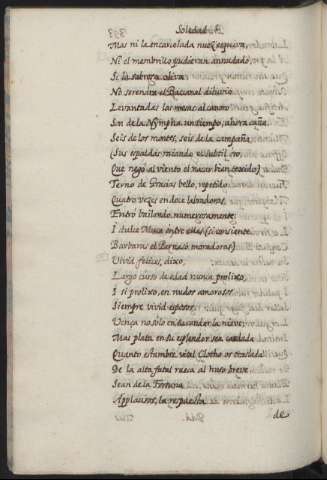 Soledad
Mas ni la encarcelada nuez esquiva,
Ni el membrillo pudieran anudado,
Si la sabrosa oliva
No serenara el Bacanal diluvio.
Levantadas las mesas al canoro
Son de la Nympha un tiempo, ahora caña,
Seis de los montes, seis de la campaña
(Sus espaldas raiando el subtil oro,
Que negò al viento el nacar bien texido)
Terno de Gracias bello, repetido
Quatro vezes en doce labradoras
Entrò bailando numerosamente:
I dulce Musa entre ellas (si consiente
Barbaras el Parnaso moradoras)
Vivid felices, dixo,
Largo curso de edad nunca prolixo,
I si prolixo, en nudos amorosos
Siempre vivid esposos.
Venza no solo en su candor la nieve,
Mas plata en su esplendor sea cardada
Quanto estambre vital Clotho os traslada
De la alta fatal rueca al huso breve
Sean de la Fortuna
Applausos, la respuesta
de